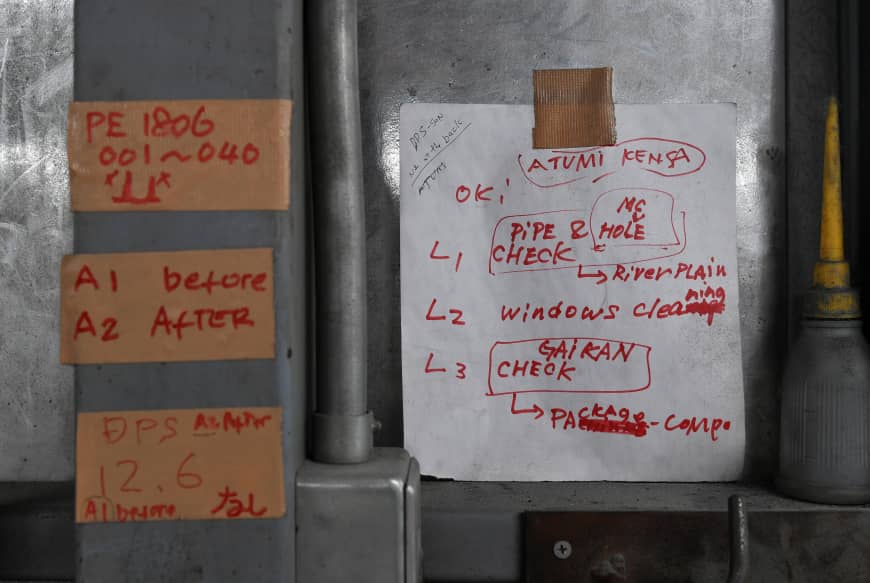 PE 180G
001~040
A1 before
A2 AFTER
DPS A2 AFTER
12.6
A1 before
DPS-SON
ATUMI
ATUMI KENSA
OK;
L1 PIPE & MG HOLE
CHECK
RiverPLAIN
L2 windows cleaning
L3 GAIKAN
CHECK
PACKAGE-COMPO